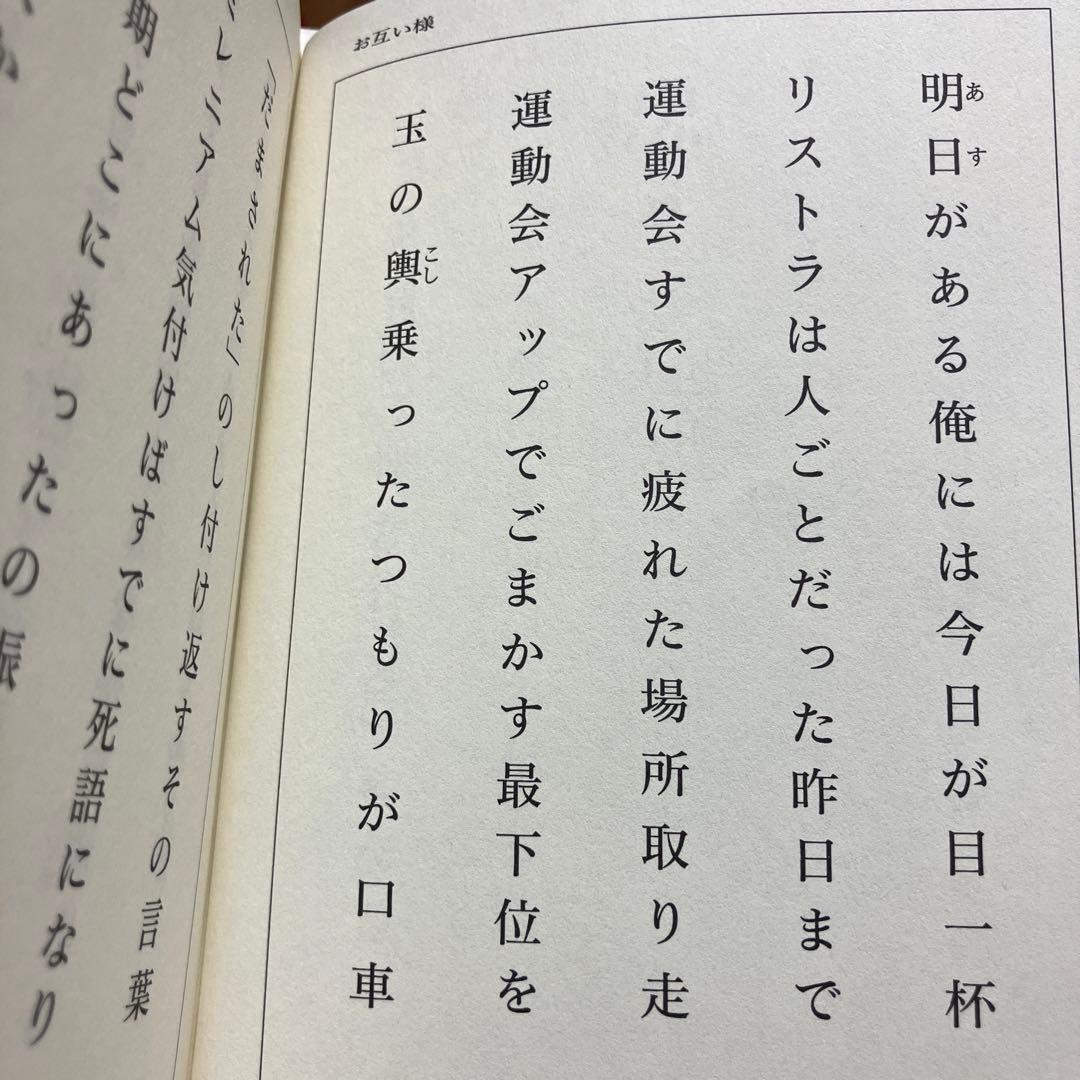 お互い様
明日がある俺には今日が目一杯
あす
リストラは人ごとだった昨日まで
運動会すでに疲れた場所取り走
運動会アップでごまかす最下位を
玉の輿乗ったつもりが口車
こし
のし付け返すその言葉
ミレニアム気付けばすでに死語になり
期どこにあったの